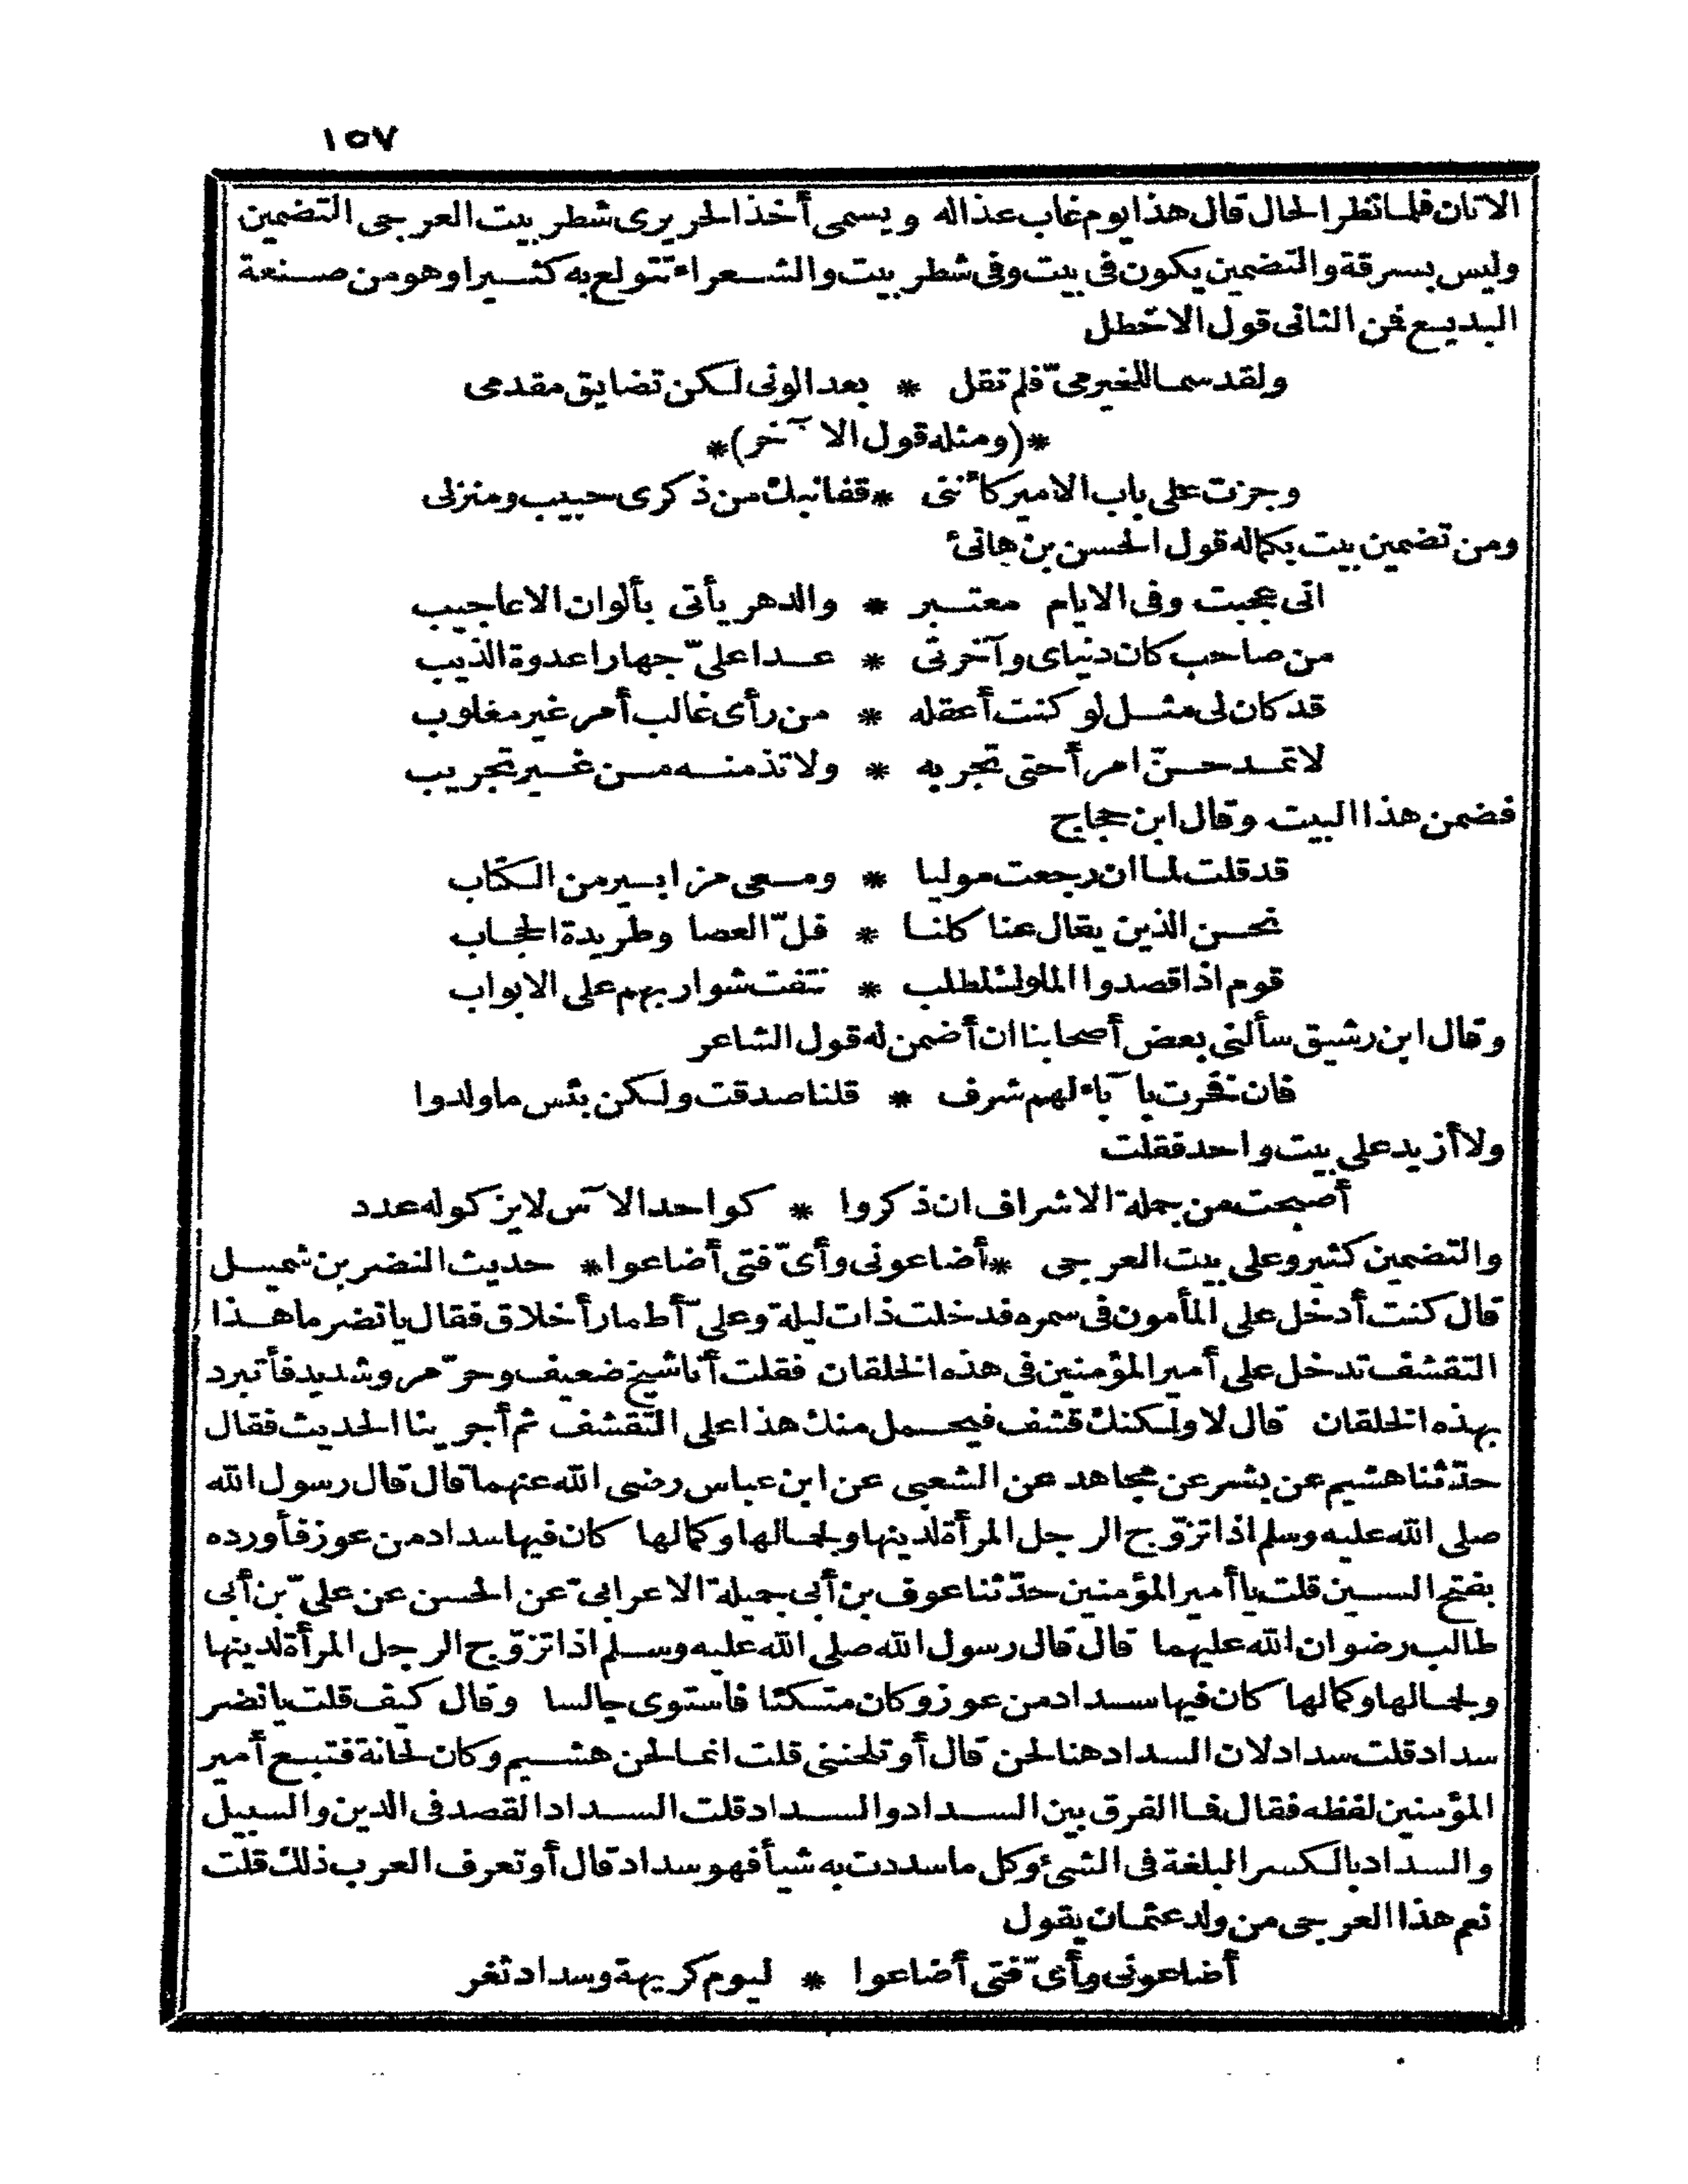 ١٥٧
الاتان فلما نظر الحال قال هذا يوم غاب عذاله ويسمى أخذ الحريرى شطر بيت العرجى التضمين
وليس بسرقة والتضمين يكون فى بيت وفى شطر بيت والشعراء تتولع به كثيرا وهو من صنعة
البديع فمن الثانى قول الاخطل
ولقد سما للخرمىّ فلم تقل * بعد الونى لكن تضايق مقدمى
*(ومثله قول الآخر)*
وجزت على باب الامير كأننى * قفا نبك من ذكرى حبيب ومنزلى
ومن تضمين بيت بكماله قول الحسن بن هانئ
انى عجبت وفى الايام معتبر * والدهر يأتى بألوان الاعاجيب
من صاحب كان دنياى وآخرتى * عدا علىّ جهارا عدوة الذيب
قد كان لى مثل لو كنت أعقله * من رأى غالب أمر غير مغلوب
لا تمدحنّ امرأ حتى تجربه * ولا تذمنه من غير تجريب
فضمن هذا البيت وقال ابن حجاج
قد قلت لما ان رجعت موليا * ومعى مزابير من الكتاب
نحن الذين يقال عنا كلنا * فلّ العصا وطريدة الحجاب
قوم اذا قصدوا الملوك لمطلب * نتفت شواربهم على الابواب
وقال ابن رشيق سألنى بعض أصحابنا ان أضمن له قول الشاعر
فان نخرت بآباء لهم شرف * قلنا صدقت ولكن بئس ما ولدوا
ولا أزيد على بيت واحد فقلت
أصبحت من جملة الاشراف ان ذكروا * كواحد الآس لا يزكو له عدد
والتضمين كثير وعلى بيت العرجى *أضاعونى وأىّ فتى أضاعوا* حديث النضر بن شميل
قال كنت أدخل على المأمون فى سمره فدخلت ذات ليلة وعلىّ أطمار أخلاق فقال يا نضر ما هذا
التقشف تدخل على أمير المؤمنين فى هذه الخلقان فقلت أنا شيخ ضعيف وحرّ مرو شديد فأتبرد
بهذه الخلقان قال لا ولكنك قشف فيحمل منك هذا على التقشف ثم أجرينا الحديث فقال
حدّثنا هشيم عن بشر عن مجاهد عن الشعبى عن ابن عباس رضى الله عنهما قال قال رسول الله
صلى الله عليه وسلم اذا تزوّج الرجل المرأة لدينها ولجمالها وكمالها كان فيها سداد من عوز فأورده
بفتح السين قلت يا أمير المؤمنين حدّثنا عوف بن أبى جميلة الاعرابىّ عن الحسن عن علىّ بن أبى
طالب رضوان الله عليهما قال قال رسول الله صلى الله عليه وسلم اذا تزوّج الرجل المرأة لدينها
ولجمالها وكمالها كان فيها سداد من عوز وكان متكئا فاستوى جالسا وقال كيف قلت يا نضر
سداد قلت سداد لان السداد هنا لحن قال أو تلحننى قلت انما لحن هشيم وكان لحانة فتبع أمير
المؤمنين لفظه فقال فما الفرق بين السداد والسداد قلت السداد القصد فى الدين والسبيل
والسداد بالكسر البلغة فى الشئ وكل ما سددت به شيأ فهو سداد قال أو تعرف العرب ذلك قلت
نعم هذا العرجى من ولد عثمان يقول
أضاعونى وأىّ فتى أضاعوا * ليوم كريهة وسداد ثغر